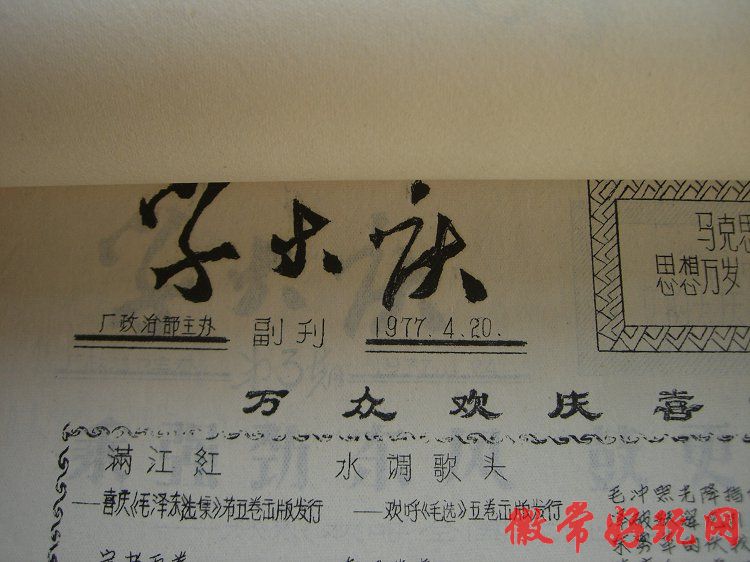 学大庆
厂政治部主办 副刊 1977.4.20.
马克思
思想万发
万众欢庆喜
满江红
——喜庆《毛泽东选集》第五卷出版发行
水调歌头
——欢呼《毛选》五卷出版发行
毛冲黑光降指
徽常好玩网